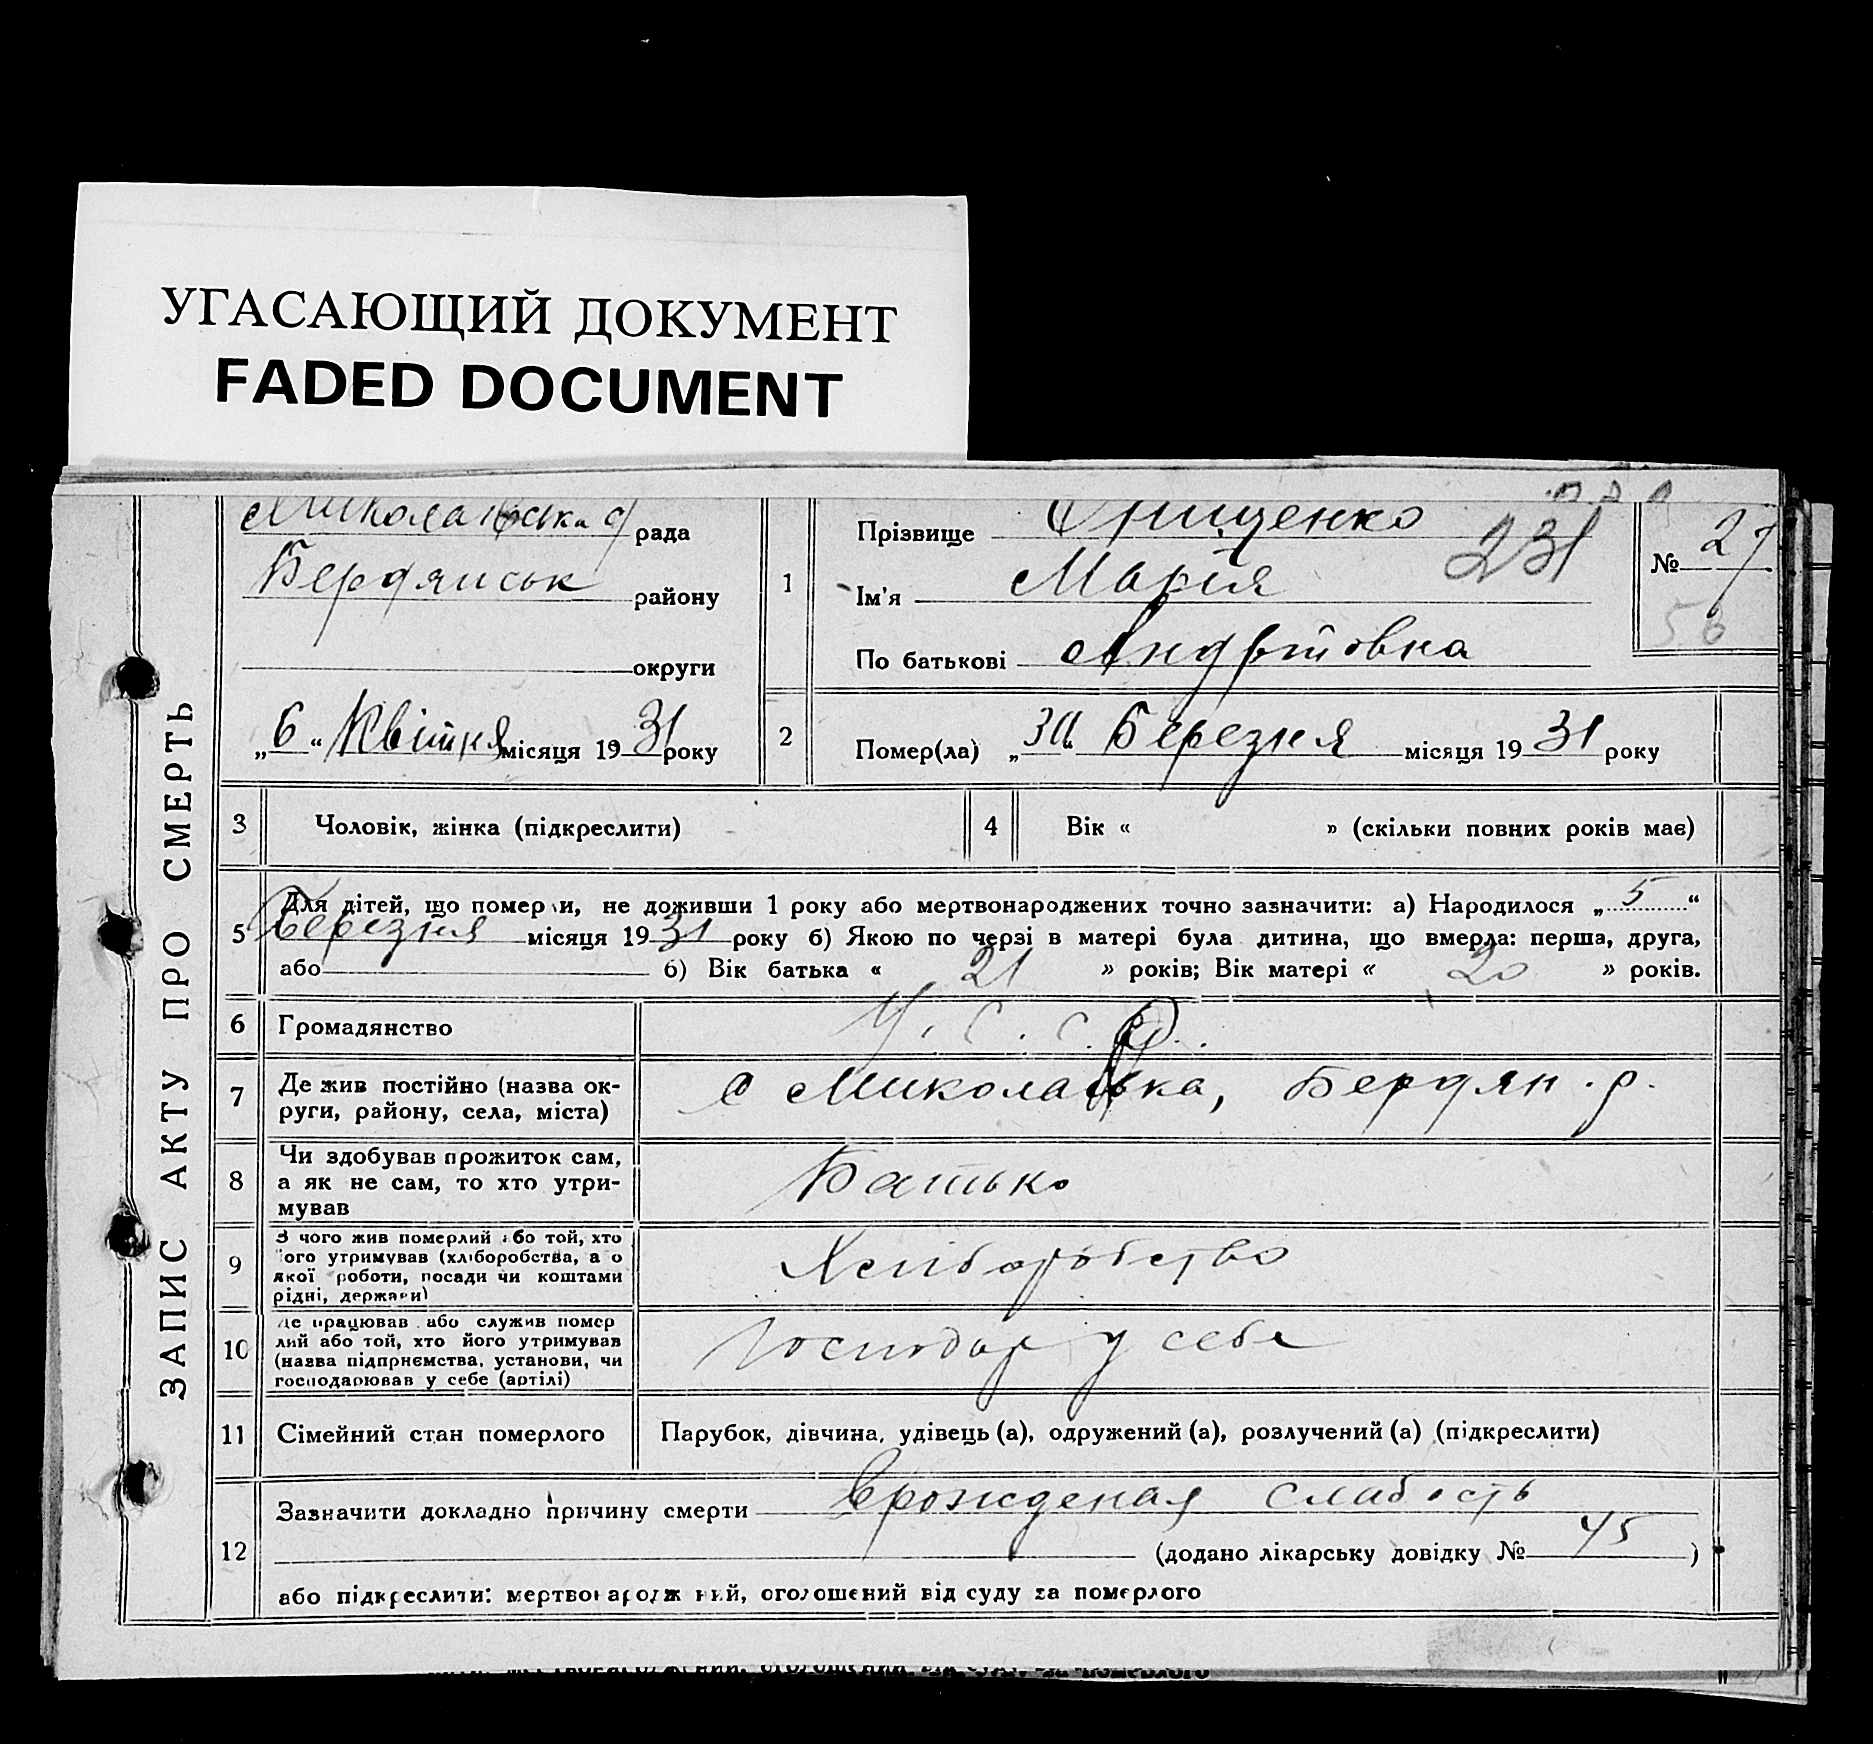 УГАСАЮЩИЙ ДОКУМЕНТ
FADED DOCUMENT
ЗАПИС АКТУ ПРО СМЕРТЬ
рада
Бердянськ району
округи
„6“ Квітня місяця 1931 року
1
Прізвище Грищенко
Ім'я Марія
231
По батькові
№ 27
56
2
Помер(ла) „30“ Березня місяця 1931 року
3 Чоловік, жінка (підкреслити)
4 Вік « » (скільки повних років має)
5 Для дітей, що померли, не доживши 1 року або мертвонароджених точно зазначити: а) Народилося „5“
Березня місяця 1931 року б) Якою по черзі в матері була дитина, що вмерла: перша, друга,
або б) Вік батька « 21 » років; Вік матері « 20 » років.
6 Громадянство У.С.С.Р.
7 Де жив постійно (назва ок-
руги, району, села, міста)
с Миколаївка, Бердян. р.
8 Чи здобував прожиток сам,
а як не сам, то хто утри-
мував
Батько
9 З чого жив померлий або той, хто
його утримував (хліборобства, а о
якої роботи, посади чи коштами
рідні, держави)
Хліборобство
10 Де працював або служив помер
лий або той, хто його утримував
(назва підприємства, установи, чи
господарював у себе (артілі)
Господар у себе
11 Сімейний стан померлого Парубок, дівчина, удівець (а), одружений (а), розлучений (а) (підкреслити)
12 Зазначити докладно причину смерти врожденая слабость
(додано лікарську довідку № 45 )
або підкреслити: мертвонароджений, оголошений від суду за померлого